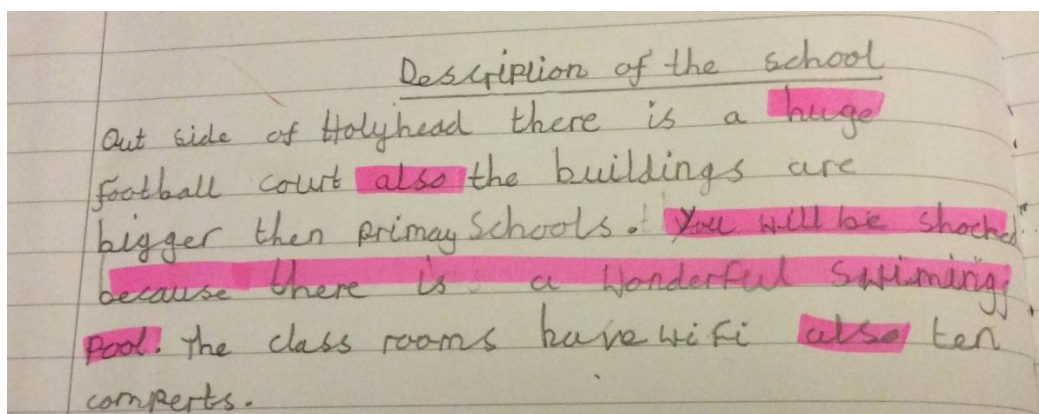 Description of the school
Out side of Holyhead there is a huge
football court also the buildings are
bigger then primay Schools. You will be shocked
because there is a wonderful swiming
pool. The class rooms have wifi also ten
comperts.